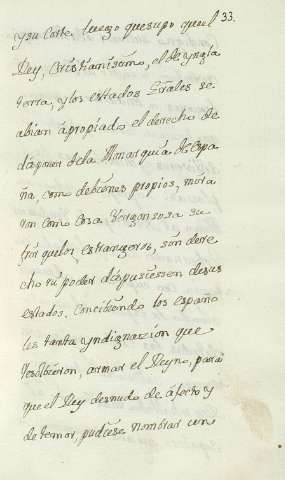 33.
ysu Corte luego quesupo queel
Rey, Cristianisimo, el de yngla
terra, y los estados Grãles se
abian apropiado el derecho de
disponer dela Monarquia de Espa
ña, como debienes propios, mira
ron como Cosa Vergonsosa su
frir quelos estrangeros, sin dere
cho ni poder dispusiessen desus
estados. Concibiendo los españo
les tanta yndignazion que
resolbieron, armar el Reyno, para
que el Rey desnudo de afecto y
de temor, pudiese nombrar con